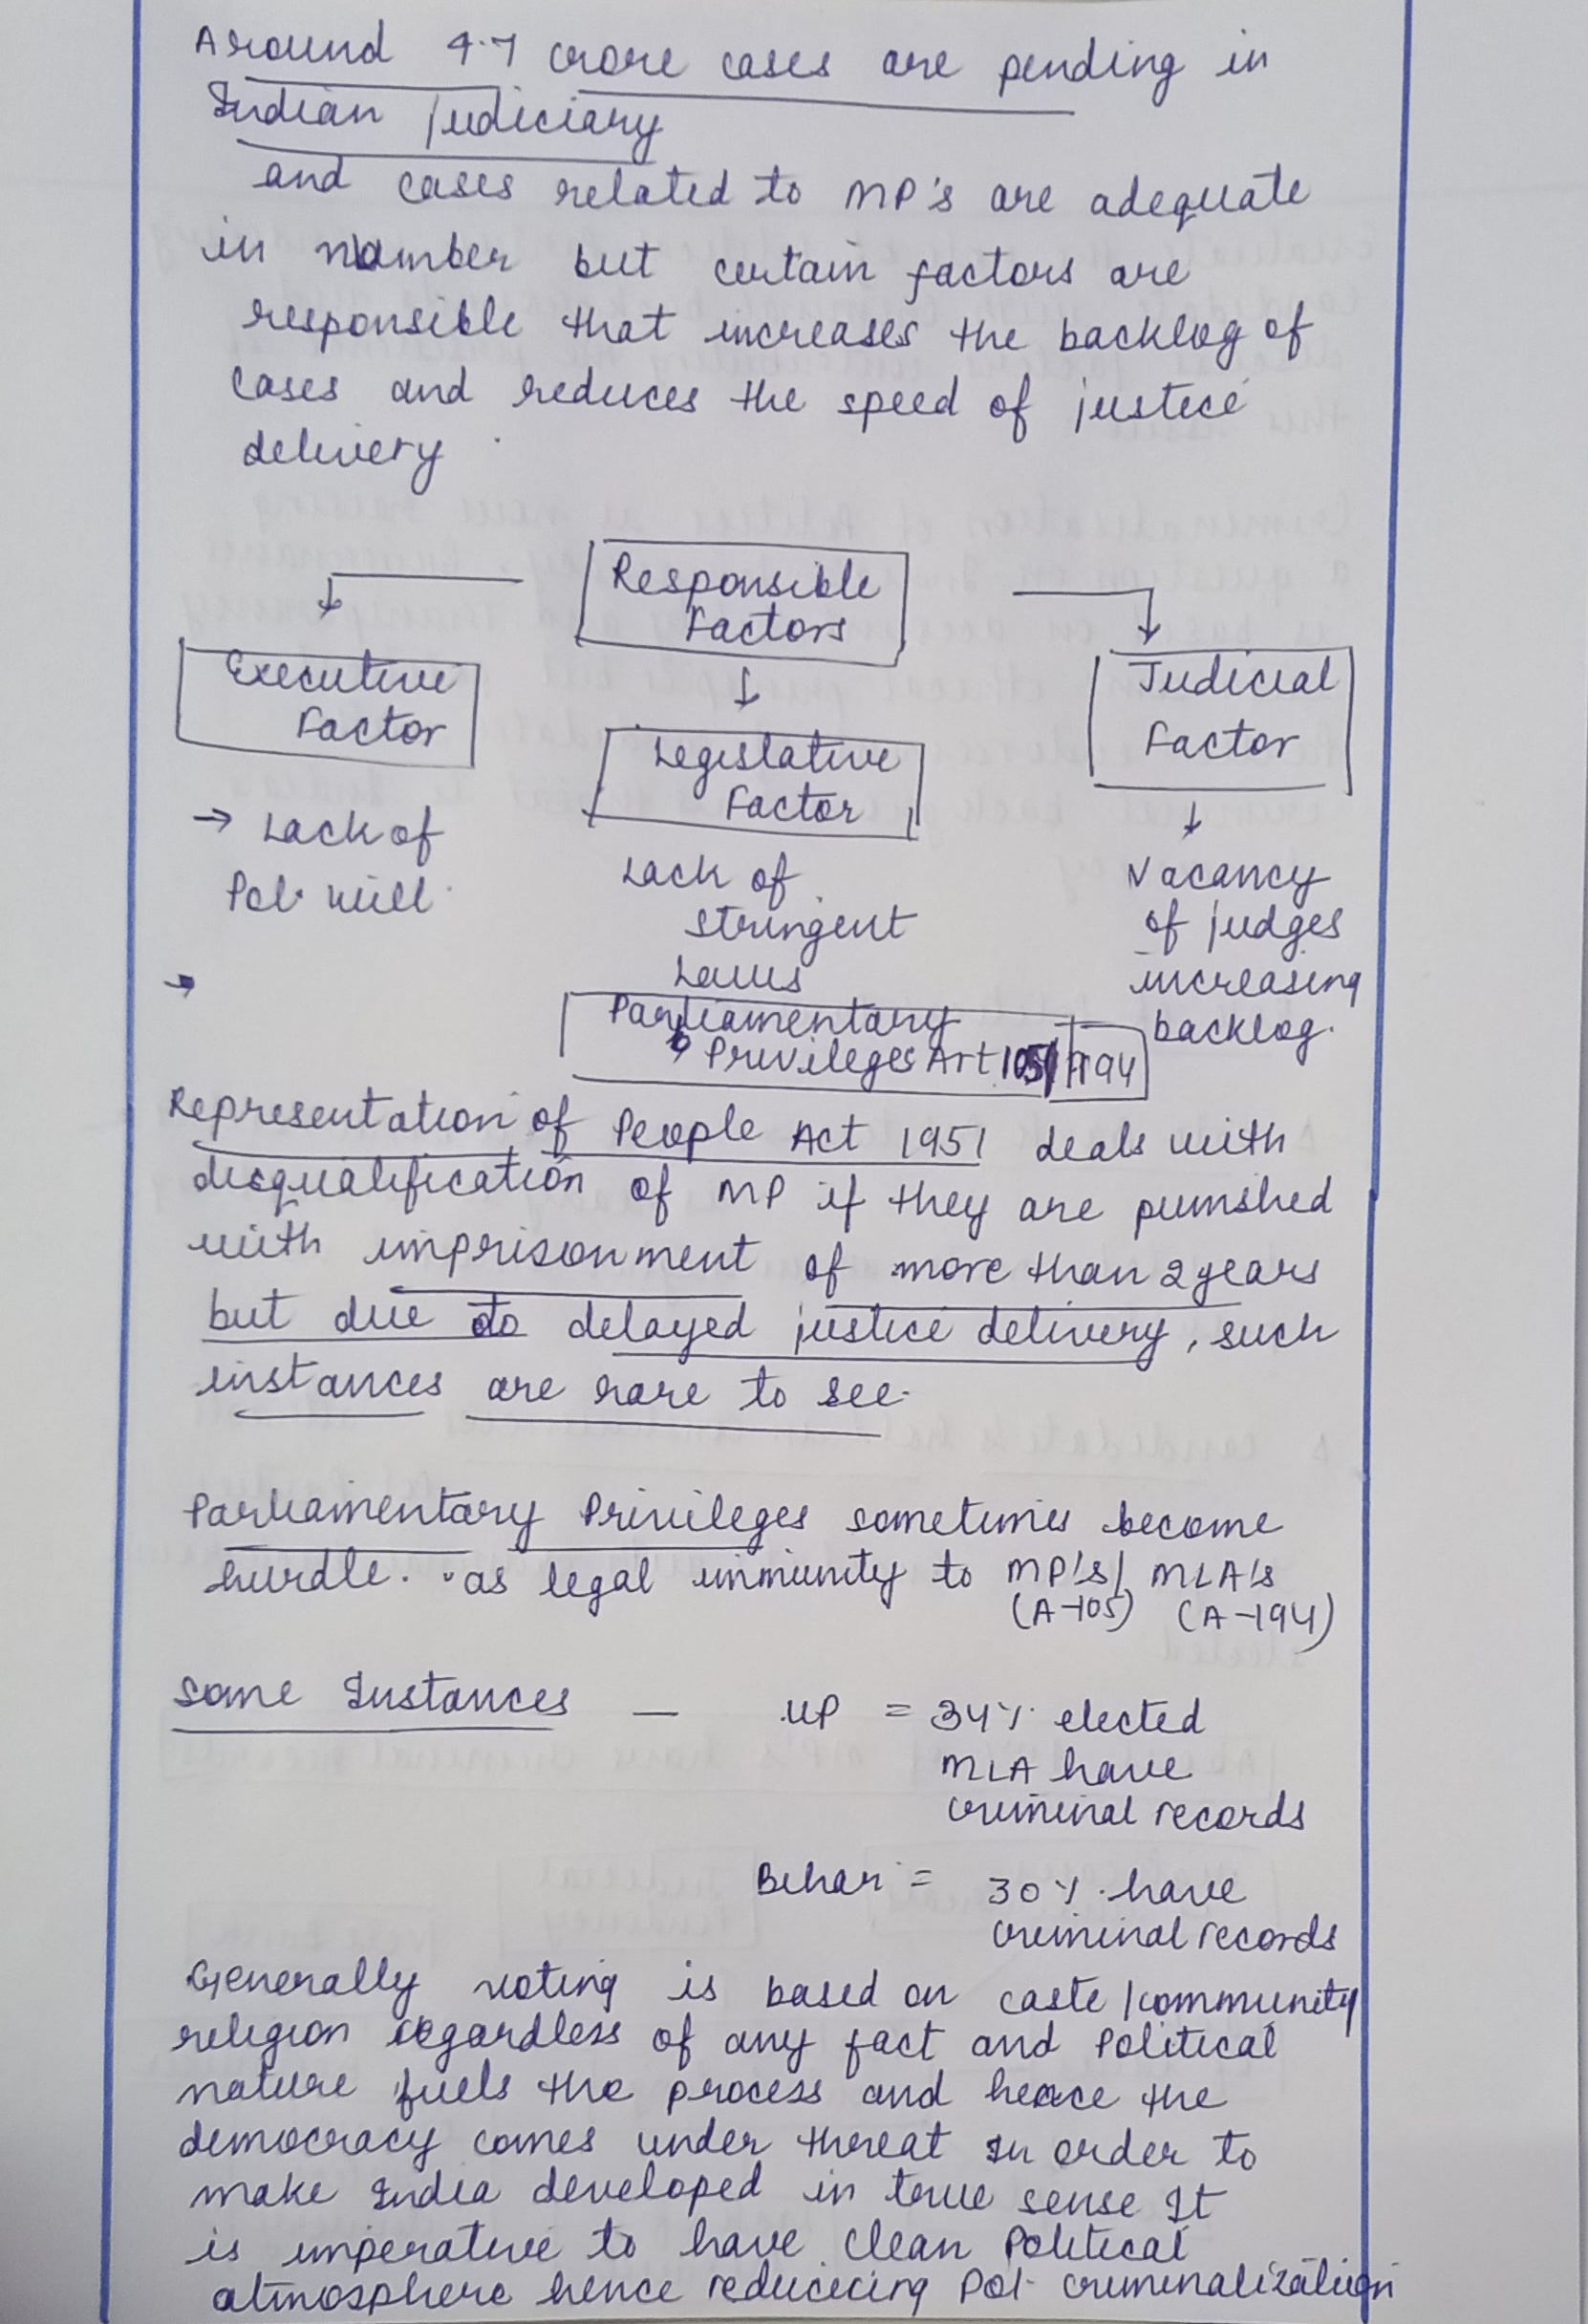 Around 4.7 crore cases are pending in
Indian Judiciary
and cases related to MP's are adequate
in number but certain factors are
responsible that increases the backlog of
cases and reduces the speed of justice
delivery.
Responsible
Factors
Executive
Factor
Legislative
Factor
Judicial
Factor
→ Lack of
Pol. will.
→
Lack of
stringent
Laws
Parliamentary
Privileges Art 105/194
Vacancy
of judges
increasing
backlog.
Representation of People Act 1951 deals with
disqualification of MP if they are punished
with imprisonment of more than 2 years
but due to delayed justice delivery, such
instances are rare to see.
Parliamentary Privileges sometimes become
hurdle. as legal immunity to MP's/ MLA's
(A-105) (A-194)
Some Instances — UP = 34% elected
MLA have
criminal records
Bihar = 30% have
criminal records
Generally voting is based on caste/community
religion regardless of any fact and Political
nature fuels the process and hence the
democracy comes under threat In order to
make India developed in true sense It
is imperative to have clean Political
atmosphere hence reducecing Pol. criminalization